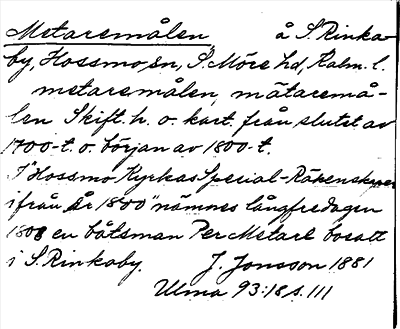 Metaremålen, å S. Rinka-
by, Hossmo sn, S. Möre hd, Kalm. l.
metaremålen, mätaremå-
len Skift. h. o. kart. från slutet av
1700-t. o. början av 1800-t.
I "Hossmo Kyrkas Special-Räkenskaper
ifrån år 1800" nämnes långfredagen
1808 en båtsman Per Metare bosatt
i S. Rinkaby. J. Jonsson 1881
Ulma 93:18 s. 111